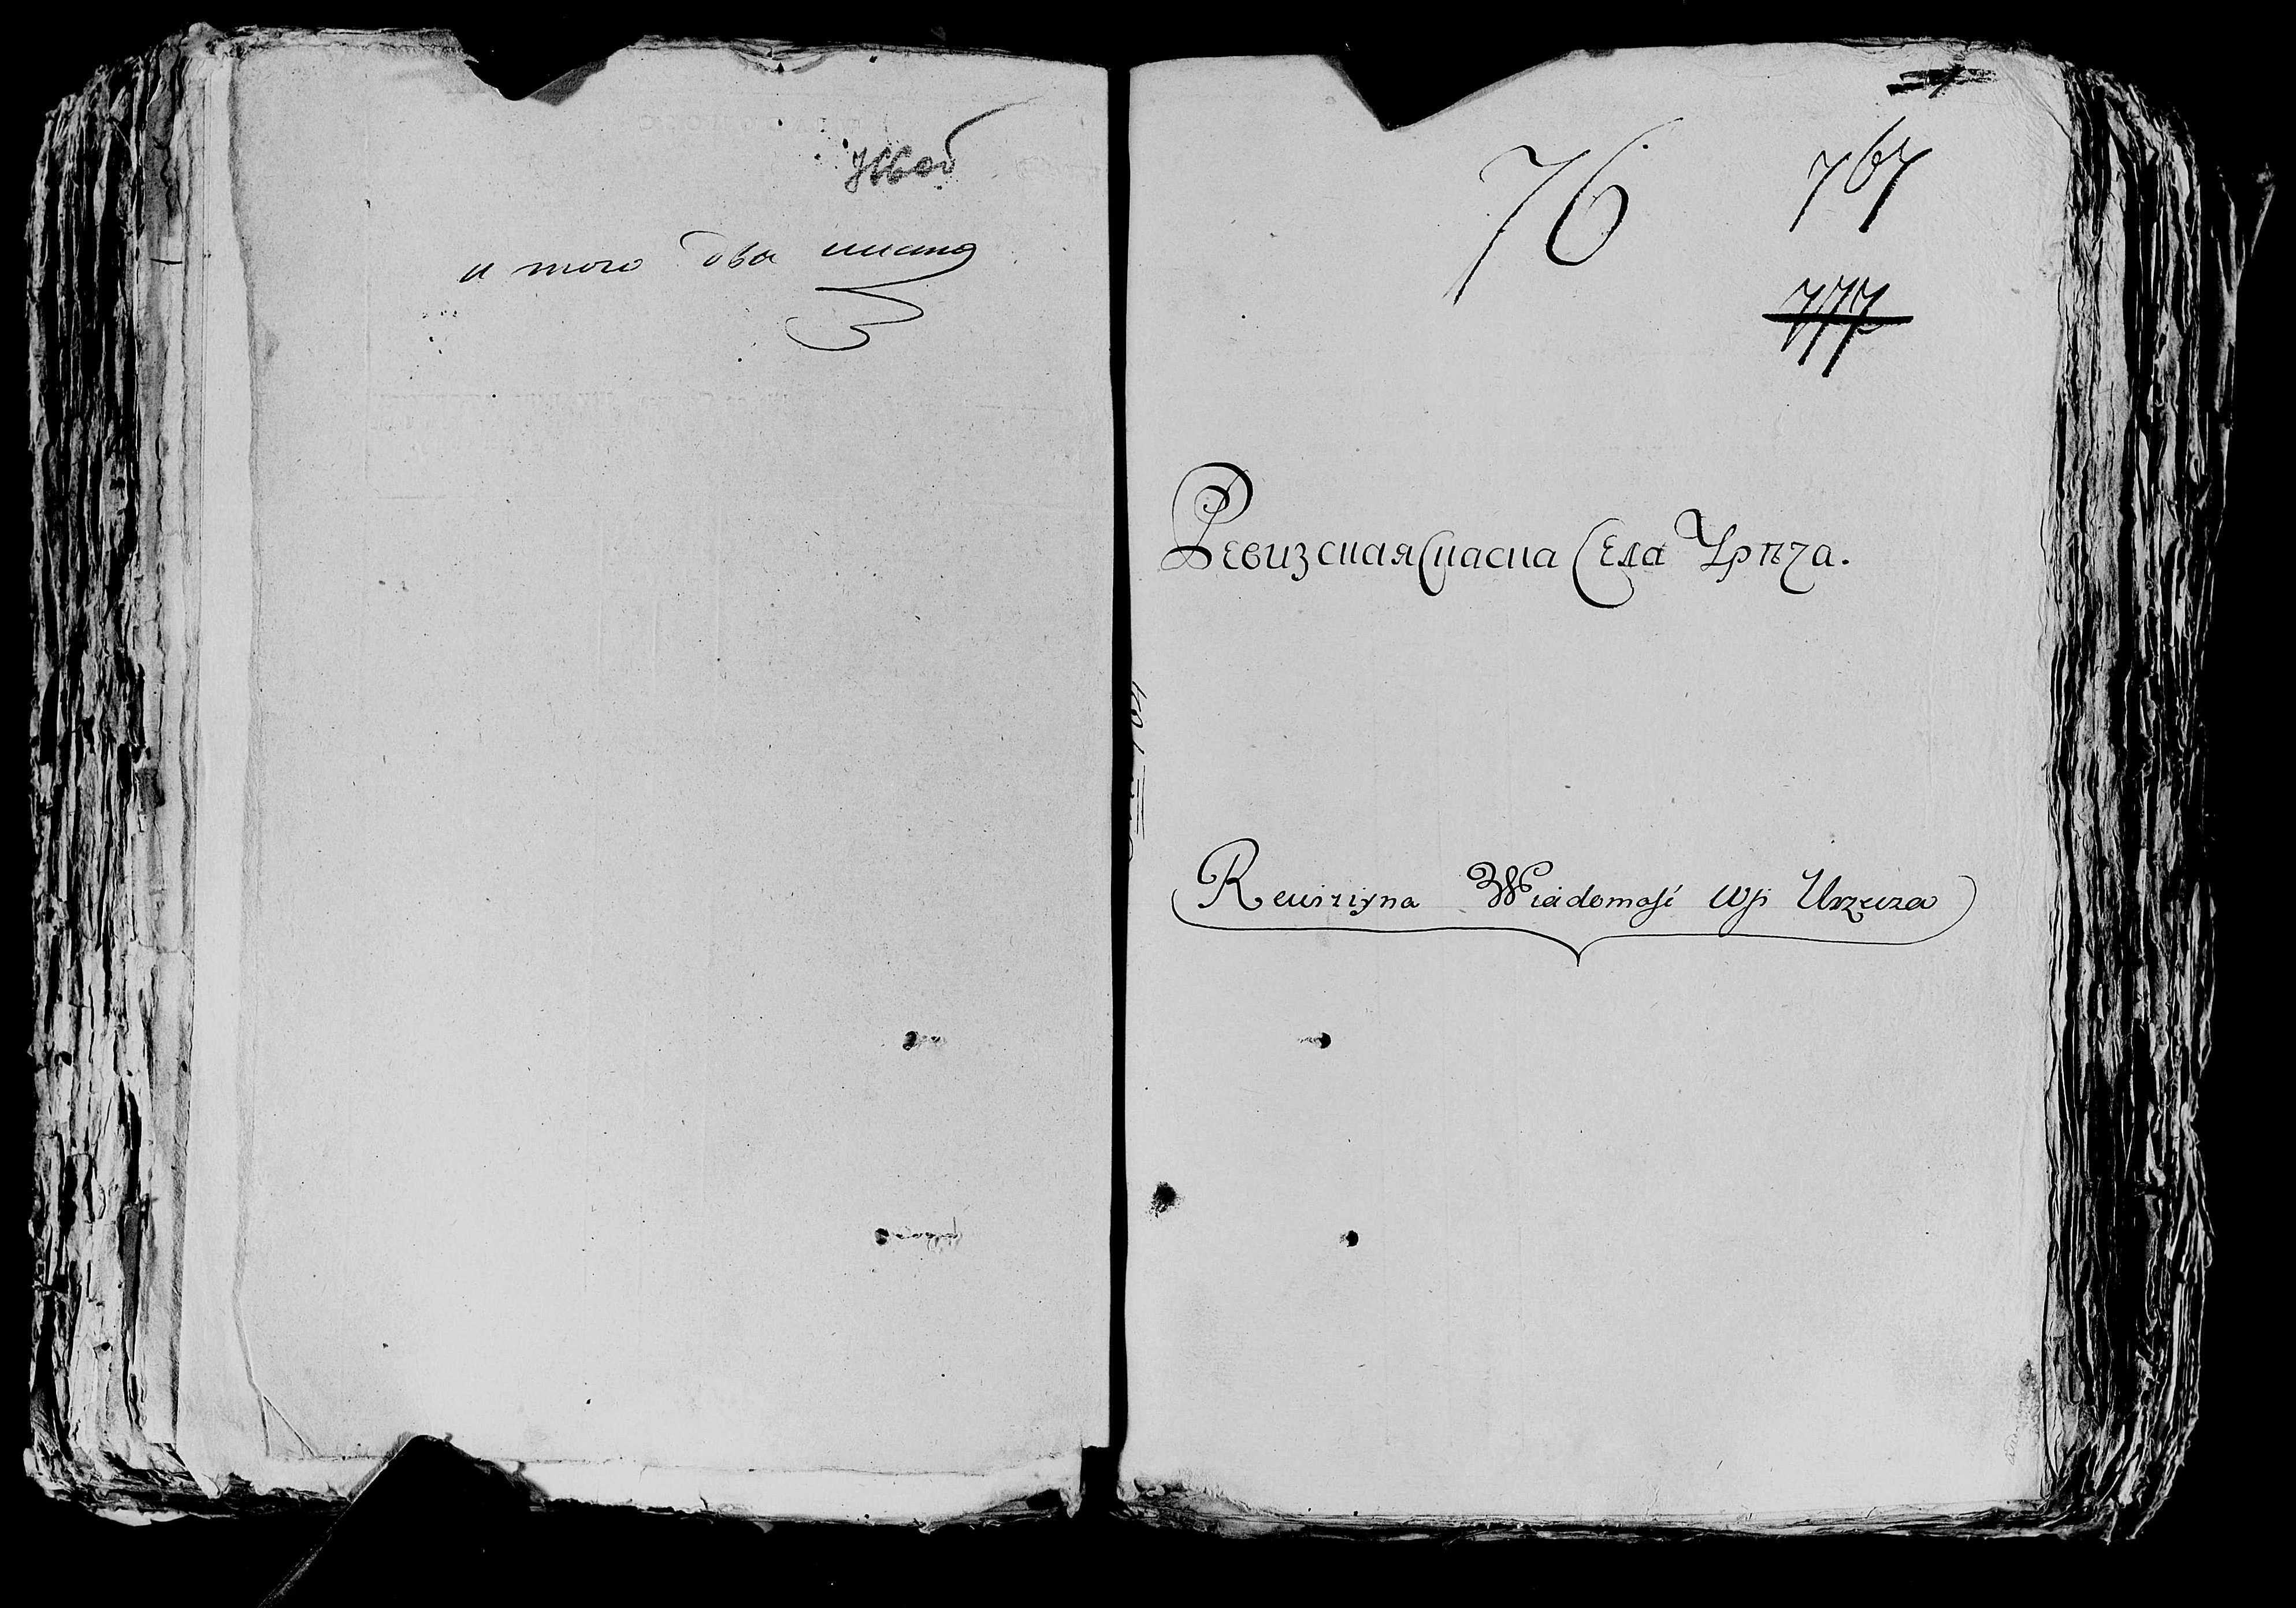 766об
и того два листа
76
767
777
Ревизская Сказка Села Урѣча.
Rewizijna Wiadomość wsi Urzecza